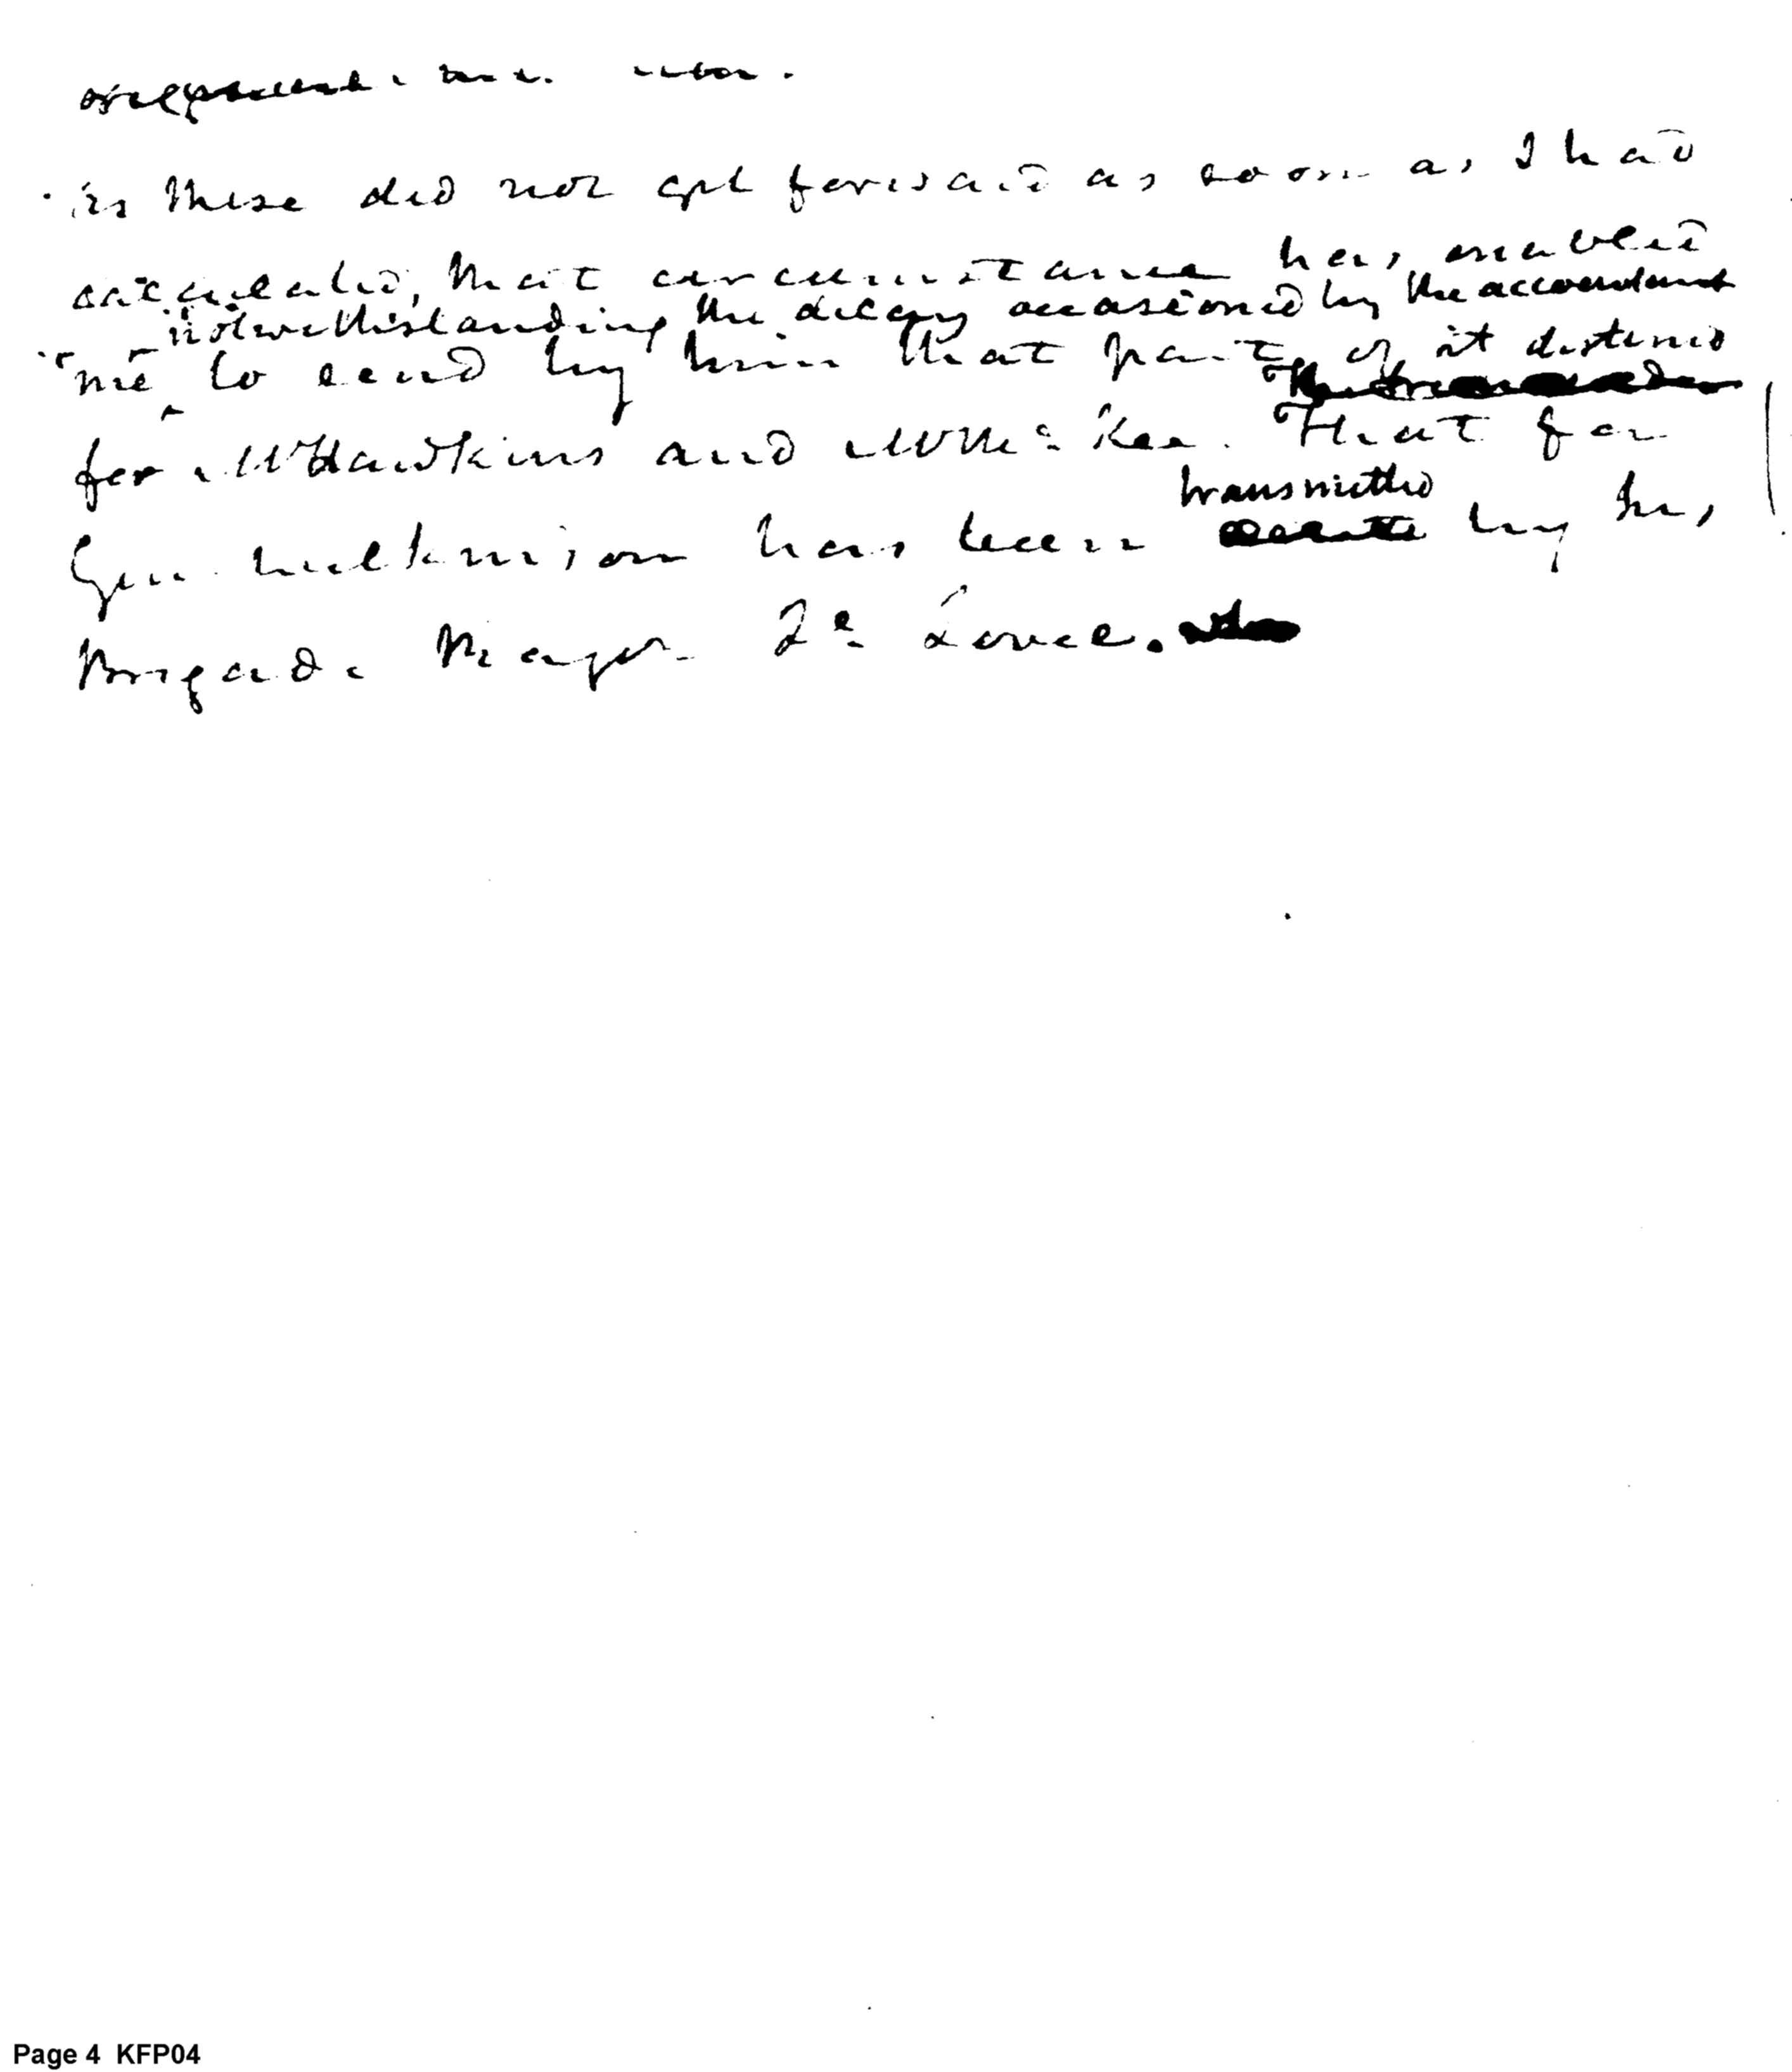 As these did not get forward as soon as I had
calculated, that circumstance has enabled
notwithstanding the delay occasioned by the accountant
me to send by him that part of it destined
for Mr Hawkins and Mr Mc Kee. That for
transmitted
Gen Wilkinson has been by his
Brigade Major Lovell.
Page 4 KFP04